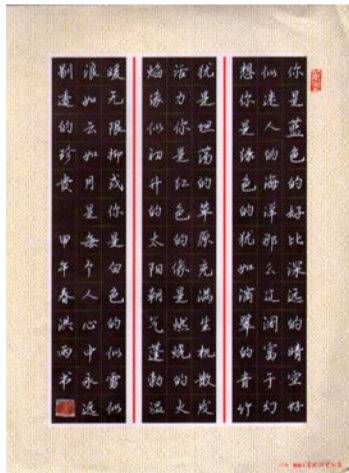 你是蓝色的好比深远的晴空好
似迷人的海洋那么辽阔富于幻
想你是绿色的犹如滴翠的青竹
犹是坦荡的草原充满生机散发
活力你是红色的像是燃烧的火
焰像似初升的太阳朝气蓬勃温
暖无限抑或你是白色的似雪似
浪如云如月是每个人心中永远
别透的珍贵 甲午春洪雨书